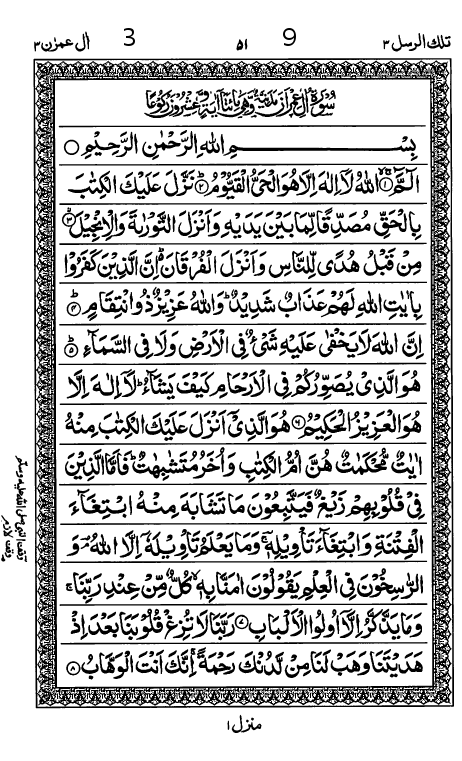 تلك الرسل ٣ 9 ٥١ 3 اٰل عمرٰن ٣
سُوْرَةُ اٰلِ عِمْرٰنَ مَدَنِيَّةٌ وَّهِىَ مِائَتَا اٰيَةٍ وَّعِشْرُوْنَ رُكُوْعًا
بِسْمِ اللهِ الرَّحْمٰنِ الرَّحِيْمِ ○
الٓمَّٓ ۙ‏﴿۱﴾ اللهُ لَاۤ اِلٰهَ اِلَّا هُوَ الْحَىُّ الْقَيُّوْمُ ؕ‏﴿۲﴾ نَزَّلَ عَلَيْكَ الْكِتٰبَ
بِالْحَقِّ مُصَدِّقًا لِّمَا بَيْنَ يَدَيْهِ وَاَنْزَلَ التَّوْرٰىةَ وَالْاِنْجِيْلَۙ‏﴿۳﴾
مِنْ قَبْلُ هُدًى لِّلنَّاسِ وَاَنْزَلَ الْفُرْقَانَ ؕ اِنَّ الَّذِيْنَ كَفَرُوْا
بِاٰيٰتِ اللهِ لَهُمْ عَذَابٌ شَدِيْدٌ ؕ وَاللهُ عَزِيْزٌ ذُو انْتِقَامٍ ؕ‏﴿۴﴾
اِنَّ اللهَ لَا يَخْفٰى عَلَيْهِ شَىْءٌ فِى الْاَرْضِ وَلَا فِى السَّمَآءِ ؕ‏﴿۵﴾
هُوَ الَّذِىْ يُصَوِّرُكُمْ فِى الْاَرْحَامِ كَيْفَ يَشَآءُ ؕ لَاۤ اِلٰهَ اِلَّا
هُوَ الْعَزِيْزُ الْحَكِيْمُ‏﴿۶﴾ هُوَ الَّذِىْۤ اَنْزَلَ عَلَيْكَ الْكِتٰبَ مِنْهُ
اٰيٰتٌ مُّحْكَمٰتٌ هُنَّ اُمُّ الْكِتٰبِ وَاُخَرُ مُتَشٰبِهٰتٌ ؕ فَاَمَّا الَّذِيْنَ
فِىْ قُلُوْبِهِمْ زَيْغٌ فَيَتَّبِعُوْنَ مَا تَشَابَهَ مِنْهُ ابْتِغَآءَ
الْفِتْنَةِ وَابْتِغَآءَ تَاْوِيْلِهٖ ۚ وَمَا يَعْلَمُ تَاْوِيْلَهٗۤ اِلَّا اللهُ ۘ وَ
الرّٰسِخُوْنَ فِى الْعِلْمِ يَقُوْلُوْنَ اٰمَنَّا بِهٖ ۙ كُلٌّ مِّنْ عِنْدِ رَبِّنَا ۚ
وَمَا يَذَّكَّرُ اِلَّاۤ اُولُوا الْاَلْبَابِ‏﴿۷﴾ رَبَّنَا لَا تُزِغْ قُلُوْبَنَا بَعْدَ اِذْ
هَدَيْتَنَا وَهَبْ لَنَا مِنْ لَّدُنْكَ رَحْمَةً ۚ اِنَّكَ اَنْتَ الْوَهَّابُ‏﴿۸﴾
وقف النبى صلى الله عليه وسلم
وقف لازم
منزل ١